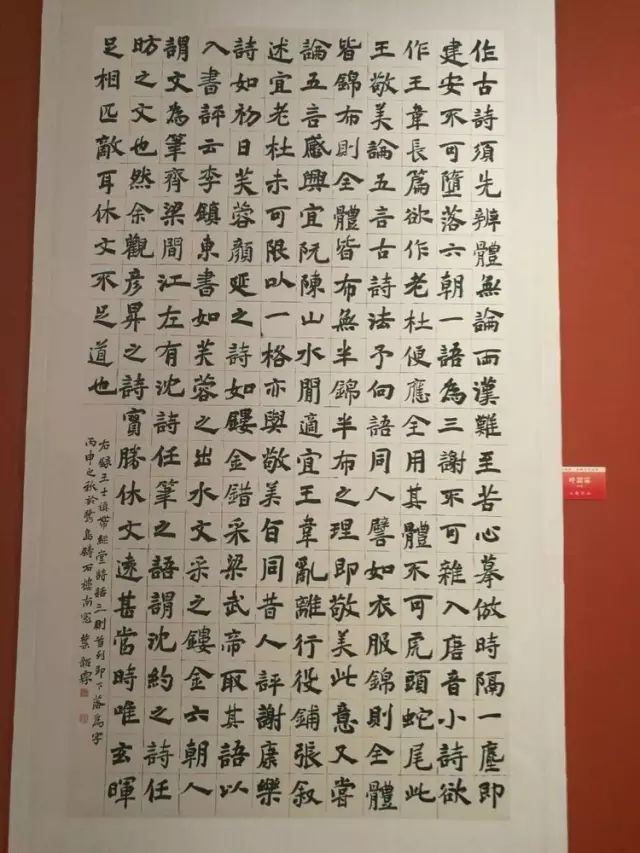 作古詩須先辨體無論兩漢難至苦心摹倣時隔一塵即
建安不可墮落六朝一語為三謝不可雜入唐音小詩欲
作王韋長篇欲作老杜便應全用其體不可虎頭蛇尾此
王敬美論五言古詩法予向語同人譬如衣服錦則全體
皆錦布則全體皆布無半錦半布之理即敬美此意又嘗
論五言感興宜阮陳山水閒適宜王韋亂離行役鋪張叙
述宜老杜未可限以一格亦與敬美旨同昔人評謝康樂
詩如初日芙蓉顏延之詩如鏤金錯采梁武帝取其語以
入書評云李鎮東書如芙蓉之出水文采之鏤金六朝人
謂文為筆齊梁間江左有沈詩任筆之語謂沈約之詩任
昉之文也然余觀彥昇之詩實勝休文遠甚當時唯玄暉
足相匹敵耳休文不足道也
右錄王士禛帶經堂詩話三則首列即下落為字
丙申之秋於鷺島石樓南窗